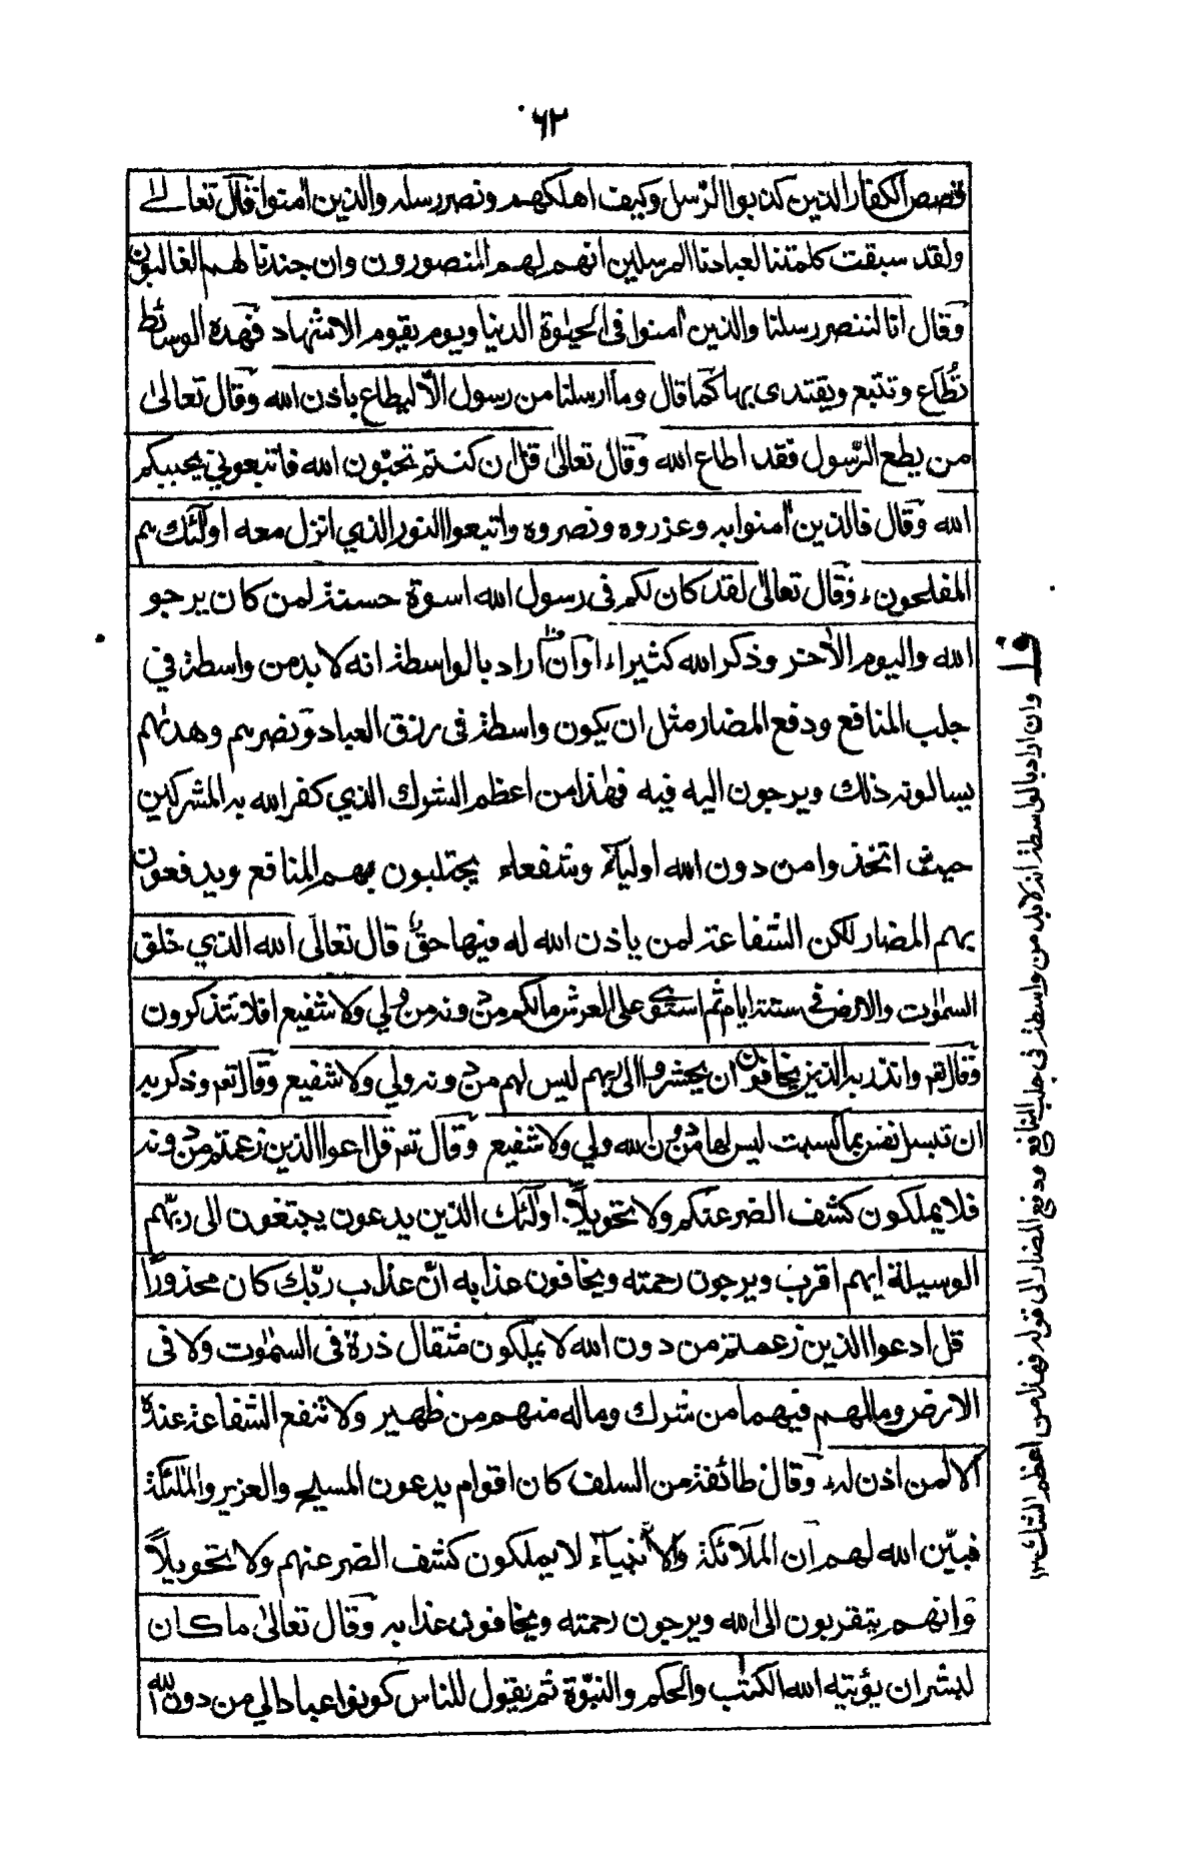 ٦٢
قصص الكفار الذين كذبوا الرسل وكيف اهلكهم ونصر رسله والذين اٰمنوا قال تعالىٰ
ولقد سبقت كلمتنا لعبادنا المرسلين انهم لهم المنصورون وان جندنا لهم الغالبون
وقال انا لننصر رسلنا والذين اٰمنوا فى الحيٰوة الدنيا ويوم يقوم الاشهاد فهذه الوسائط
تُطَاع وتتبع ويقتدى بها كما قال وما ارسلنا من رسول الّا ليطاع باذن الله وقال تعالىٰ
من يطع الرّسول فقد اطاع الله وقال تعالىٰ قل ان كنتم تحبّون الله فاتبعوني يحببكم
الله وقال فالذين اٰمنوا به وعزروه ونصروه واتبعوا النور الذي انزل معه اولٰئك هم
المفلحون ء وقال تعالىٰ لقد كان لكم فى رسول الله اسوة حسنة لمن كان يرجو
الله واليوم الاٰخر وذكر الله كثيرا ء وان اراد بالواسطة انه لا بد من واسطة في
جلب المنافع ودفع المضار مثل ان يكون واسطة فى رزق العباد ونصرهم وهدٰهم
يسالونه ذلك ويرجون اليه فيه فهٰذا من اعظم الشرك الذي كفر الله به المشركين
حيث اتخذوا من دون الله اولياء وشفعاء يجتلبون بهم المنافع ويدفعون
بهم المضار لكن الشفاعة لمن ياذن الله له فيها حقٌ قال تعالىٰ الله الذي خلق
السمٰوٰت والارض فى ستة ايام ثم استوى على العرش ما لكم من دونه من ولي ولا شفيع افلا تتذكرون
وقال تعم وانذر به الذين يخافون ان يحشروا الى ربهم ليس لهم من دونه ولي ولا شفيع وقال تعم وذكر به
ان تبسل نفس بما كسبت ليس لها من دون الله ولي ولا شفيع وقال تعم قل ادعوا الذين زعمتم من دونه
فلا يملكون كشف الضر عنكم ولا تحويلًا. اولٰئك الذين يدعون يبتغون الى ربّهم
الوسيلة ايهم اقرب ويرجون رحمته ويخافون عذابه انّ عذاب ربّك كان محذورًا
قل ادعوا الذين زعمتم من دون الله لا يملكون مثقال ذرة فى السمٰوٰت ولا فى
الارض وما لهم فيهما من شرك وما له منهم من ظهير ولا تنفع الشفاعة عنده
الا لمن اذن له ء وقال طائفة من السلف كان اقوام يدعون المسيح والعزير والملٰئكة
فبيّن الله لهم ان الملائكة والانبياء لا يملكون كشف الضر عنهم ولا تحويلًا
وانهم يتقربون الى الله ويرجون رحمته ويخافون عذابه وقال تعالىٰ ما كان
لبشر ان يؤتيه الله الكتٰب والحكم والنبوّة ثم يقول للناس كونوا عبادا لي من دون الله
ف
وان اراد بالواسطة انه لا بد من واسطة فى جلب المنافع ودفع المضار الى قوله فهذا من اعظم الشرك ١٢